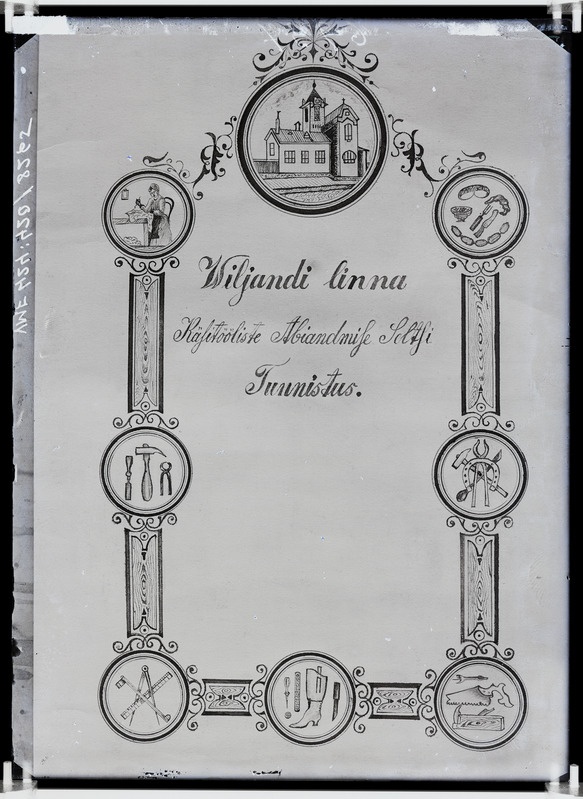 Wiljandi linna
Käsitööliste Abiandmise Seltsi
Tunnistus.